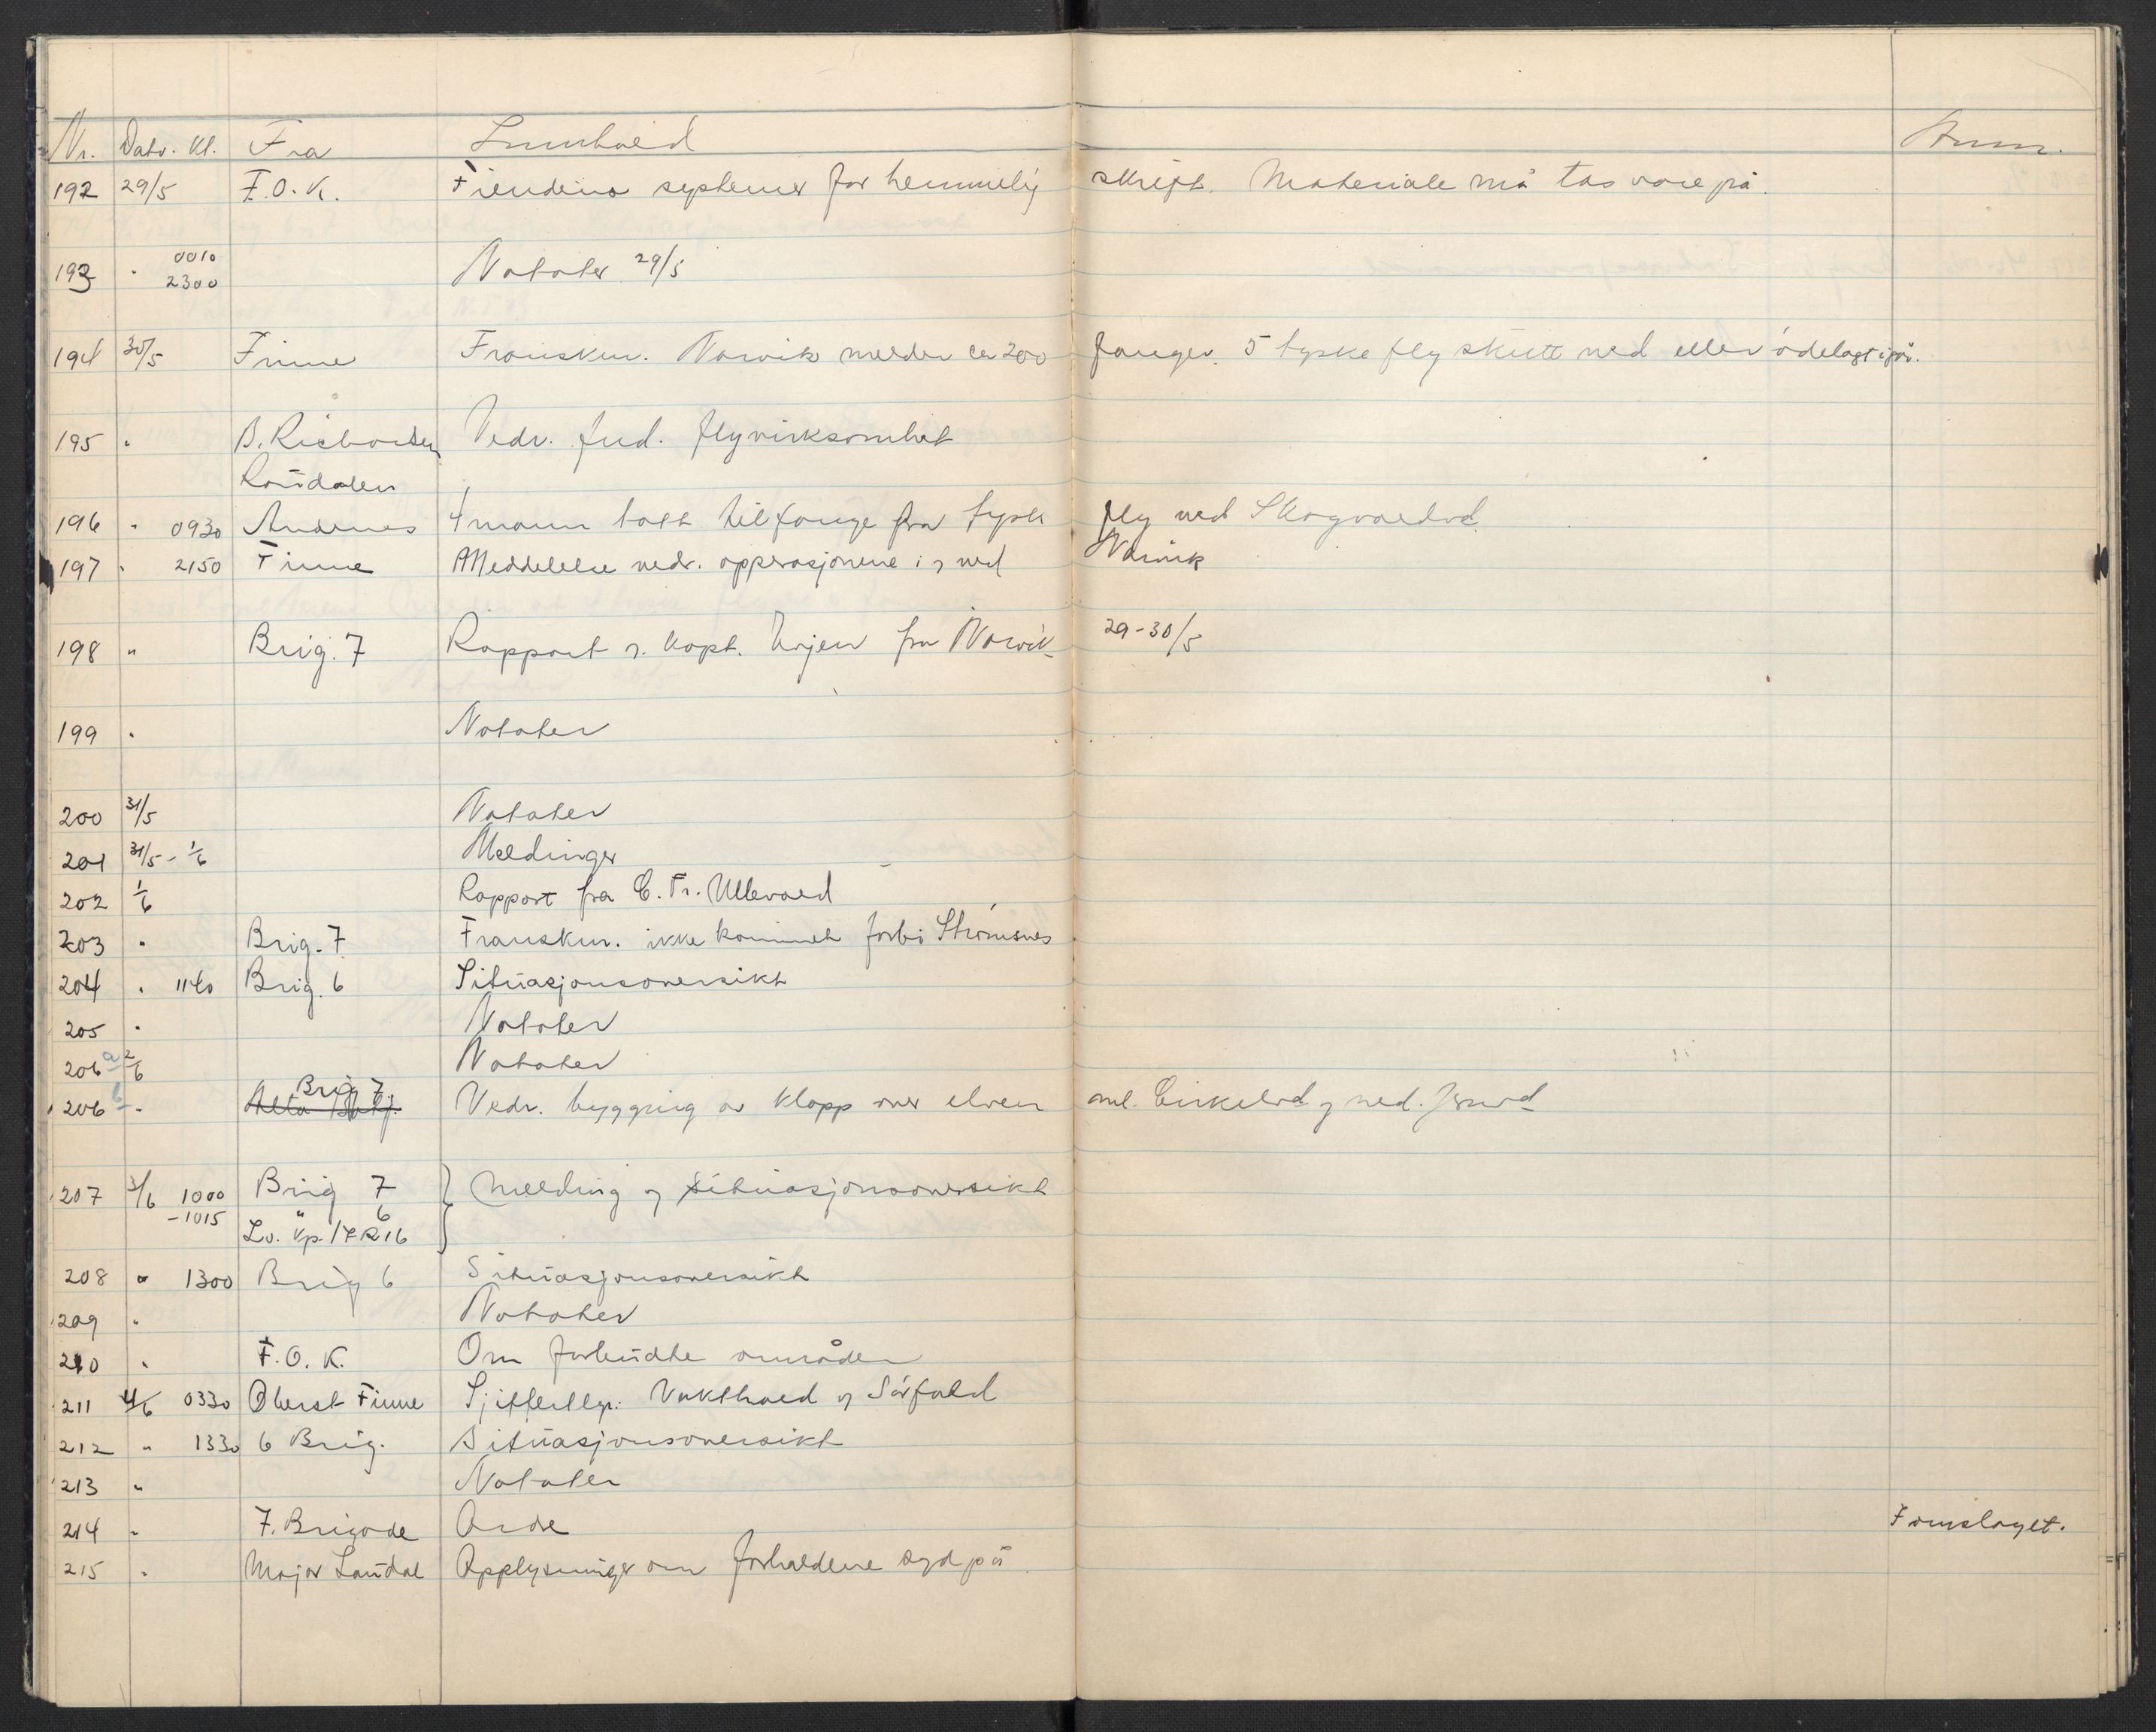 Nr. Dato. Kl. Fra Innhold Anm.
192 29/5 F.O.K. Fiendens systemer for hemmelig skrift. Materiale må tas vare på.
193 " 0010 2300 Notater 29/5
194 30/5 Finne Franskm. Narvik melder ca 200 fanger. 5 tyske fly skutt ned eller ödelagt igår.
195 " B. Richardsen Vedr. fiend. flyvirksomhet
Raudalen
196 " 0930 Andenes 4 mann tatt til fange fra tysk fly ved Skogvoll
197 " 2150 Finne Meddelelse vedr. opperasjonene i og ved Narvik
198 " Brig. 7 Rapport fra Narvik 29-30/5
199 " Notater
200 31/5 Notater
201 31/5 - 1/6 Meldinger
202 1/6 Rapport fra C. Fr. Ullevold
203 " Brig. 7 Franskm. ikke kommet forbi Strömsnes
204 " 1140 Brig. 6 Situasjonsoversikt
205 " Notater
206 a 2/6 Notater
206 b " Brig 7 Vedr. bygging av klopp over elven ml. Cirkelvd og ned.
207 3/6 1000 Brig 7 Melding og situasjonsoversikt
-1015 " 6
Lv. Kp. / IR 16
208 " 1300 Brig 6 Situasjonsoversikt
209 " Notater
210 " F.O.K. Om forbudte områder
211 4/6 0330 Oberst Finne Vakthold og Sörfold
212 " 1330 6 Brig. Situasjonsoversikt
213 " Notater
214 " 7. Brigade Ordre Fremslaget.
215 " Major Landal Opplysninger om forholdene syd på